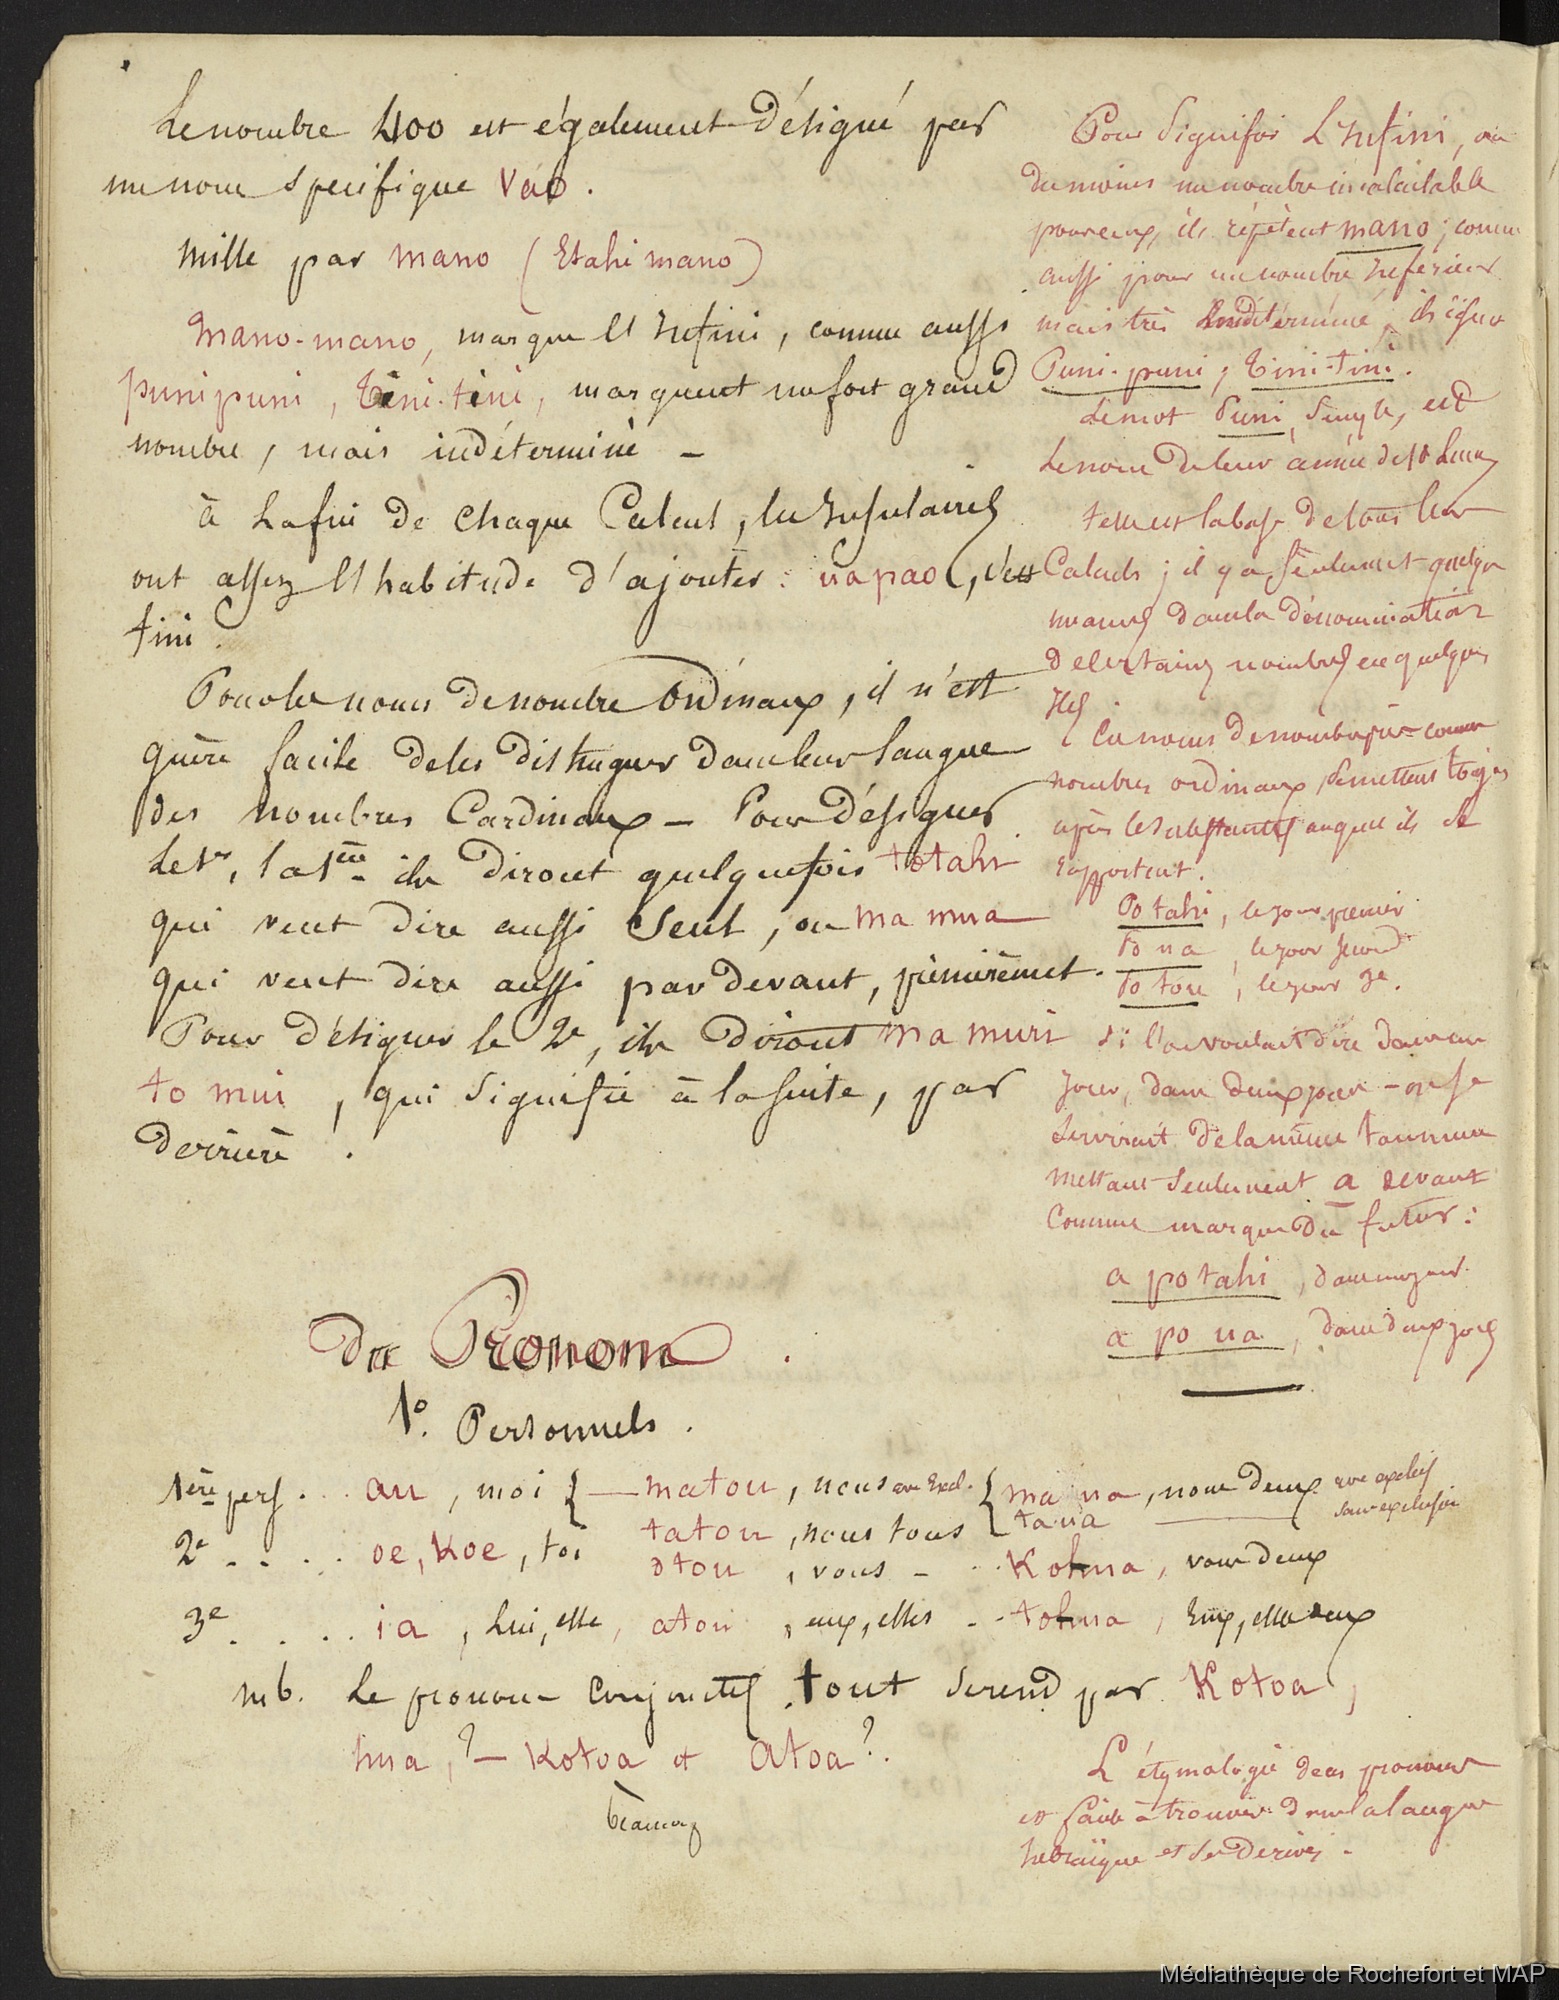 Le nombre 400 est également désigné par
un nom specifique Váo.
Mille par mano (Etahi mano)
Mano-mano, marque l'Infini, comme aussi
punipuni, Tini-tini, marquent un fort grand
nombre, mais indéterminé –
à la fin de chaque Calcul, les Insulaires
ont assez l'habitude d'ajouter : ua pao, c'est
fini.
Pour les noms de nombre Ordinaux, il n'est
guère facile de les distinguer dans leur langue
des nombres Cardinaux – Pour désigner
le 1er, la 1ère ils diront quelquefois totahi
qui veut dire aussi Seul, ou ma mua
qui veut dire aussi par devant, premièrement.
Pour désigner le 2e, ils diront ma muri
to mui, qui signifie à la suite, par
derrière.
Du Pronom.
1º. Personnels.
1ère pers... au, moi { — matou, nous avec Excl. { maua, nous deux avec exclus
tatou, nous tous taua — sans exclusion
2e .... oe, Koe, toi otou, vous – .. Kohua, vous deux
3e .... ia, lui, elle, atou, eux, elles .. tohua, Eux, elles deux
nb. Le pronom conjonctif tout se rend par Kotoa,
hua, ? – Kotoa et Atoa ?.
Pour signifier L'Infini, ou
du moins un nombre incalculable
pour eux, ils répètent mano; comme
aussi pour un nombre Inférieur
mais très Indéterminé, ils
Puni-puni, Tini-tini.
Le mot Puni, Simple, est
le nom de leur année de 10 Lunes
telle est la base de tous leurs
Calculs; il y a seulement quelques
nuances dans la dénomination
de certains nombres en quelques
Iles.
Les noms de nombre pris comme
nombres ordinaux, se mettent toujrs
après le substantif auquel ils se
rapportent.
Po tahi, le jour premier
Po ua, le jour second
Po tou, le jour 3e.
Si l'on voulait dire dans un
jour, dans deux jours – on se
servirait de la même tournure
mettant seulement a devant
Comme marque du futur :
a po tahi, dans un jour.
a po ua, dans deux jours
L'étymologie de ces pronoms
est facile à trouver dans la langue
hebraïque et ses Derivés.